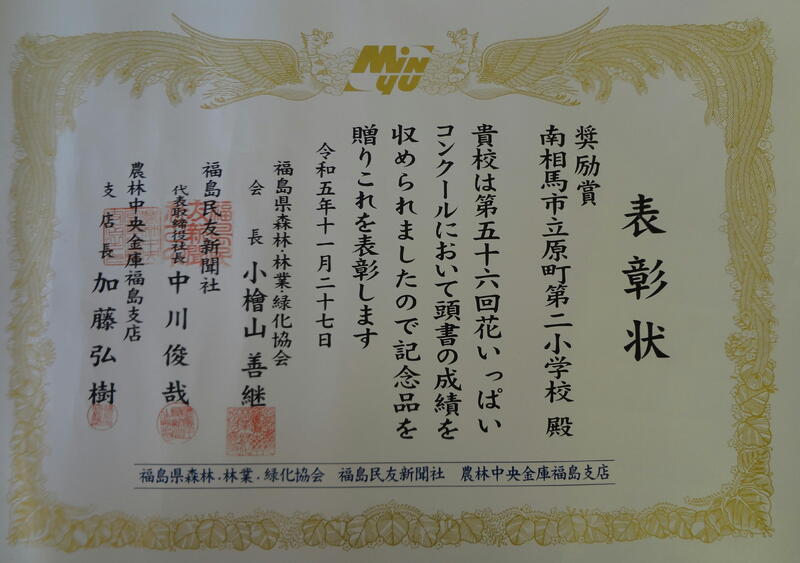 MiNYU
表彰状
奨励賞
南相馬市立原町第二小学校 殿
貴校は第五十六回花いっぱい
コンクールにおいて頭書の成績を
収められましたので記念品を
贈りこれを表彰します
令和五年十一月二十七日
福島県森林・林業・緑化協会
会長 小檜山善継
福島民友新聞社
代表取締役社長 中川俊哉
農林中央金庫福島支店
支店長 加藤弘樹
福島県森林・林業・緑化協会 福島民友新聞社 農林中央金庫福島支店